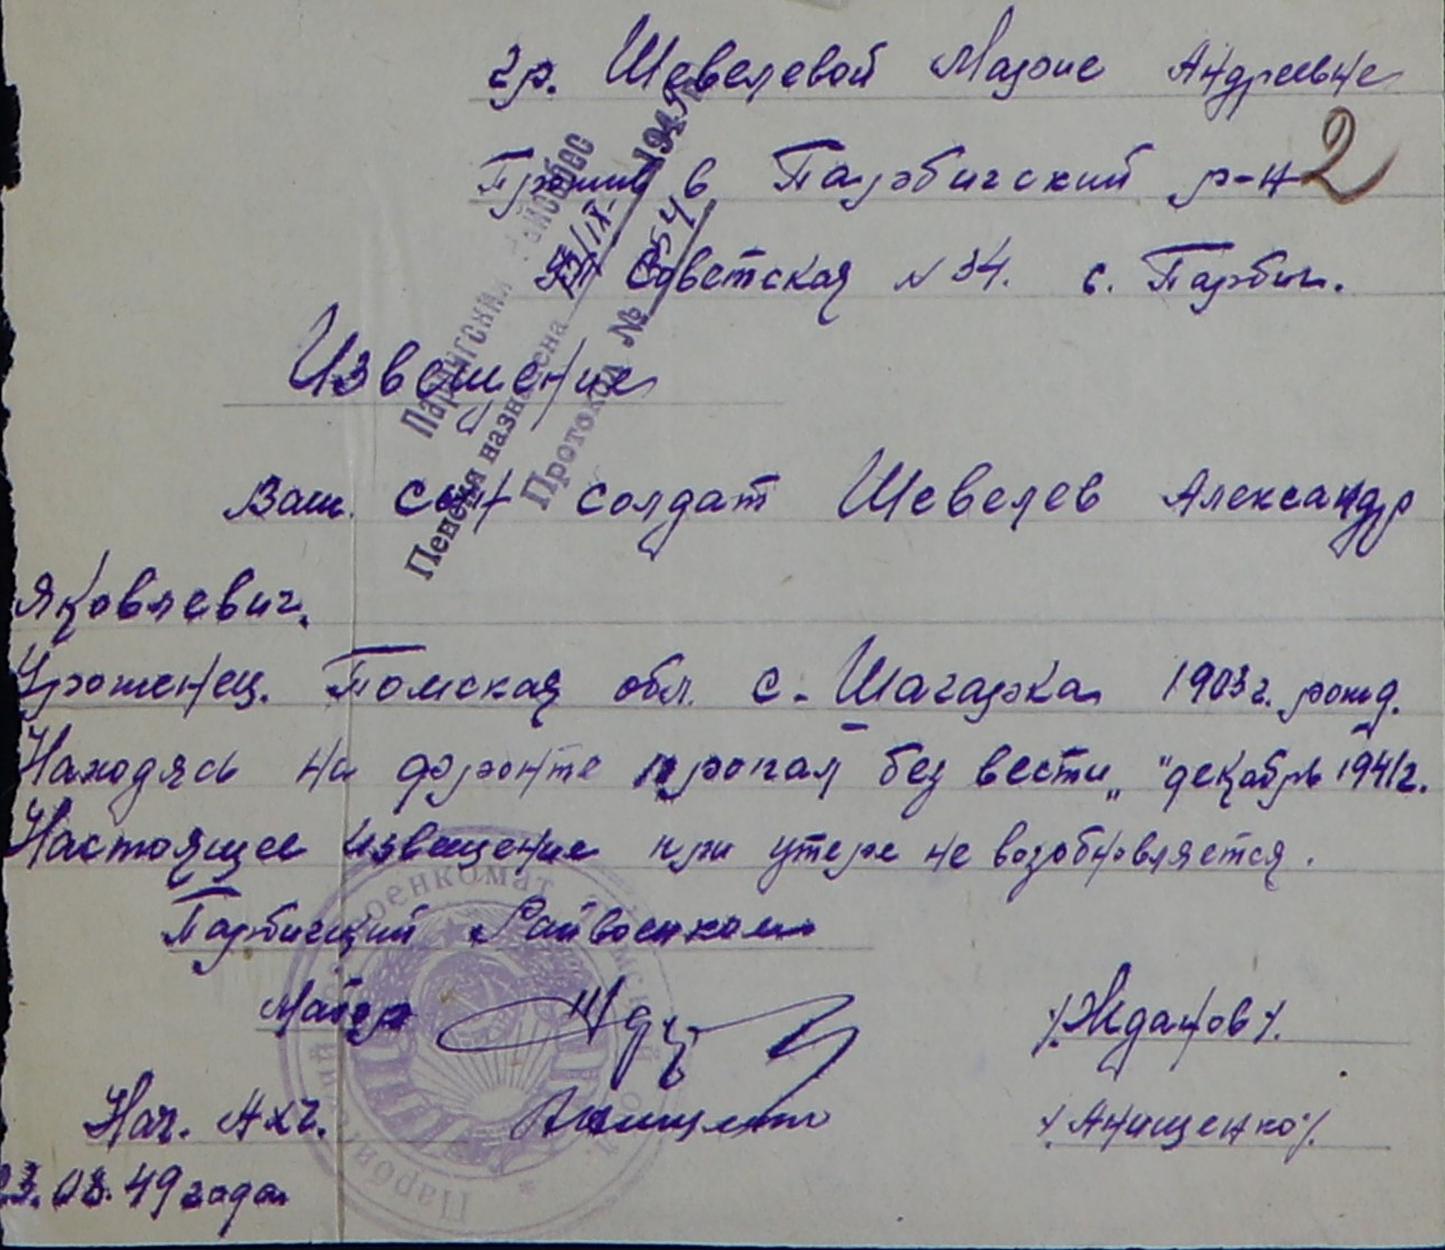 гр. Шевелевой Марие Андреевне
Прожив в Парбигский р-н 2
Советская N 34. с. Парбиг.
Извещение
Ваш. сын солдат Шевелев Александр
Яковлевич.
Уроженец. Томская обл. с. Шагарка 1903 г. рожд.
Находясь на фронте пропал без вести „ " декабрь 1941 г.
Настоящее извещение при утере не возобновляется.
Парбигский Райвоенком
Майор /Жданов/.
Нач. АХЧ. Анищенко /Анищенко/.
23.08.49 года
Парбигский Райсобес
Пенсия назначена IX 1949
Протокол №
Военкомат